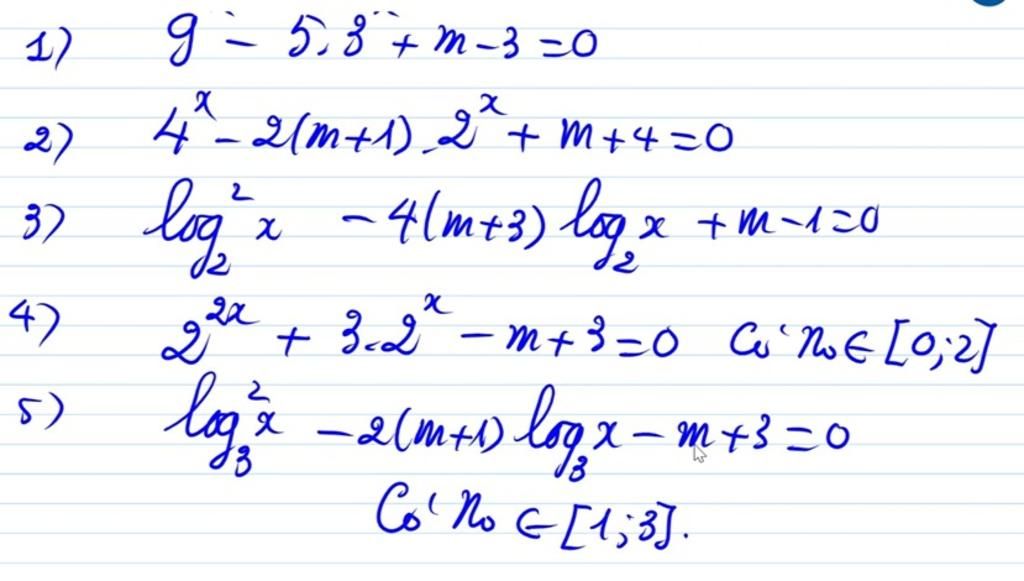 1) 9ˣ - 5.3ˣ + m - 3 = 0
2) 4ˣ - 2(m+1).2ˣ + m + 4 = 0
3) log₂²x - 4(m+3) log₂x + m - 1 = 0
4) 2²ˣ + 3.2ˣ - m + 3 = 0 Có no ∈ [0;2]
5) log₃²x - 2(m+1) log₃x - m + 3 = 0
Có no ∈ [1;3].